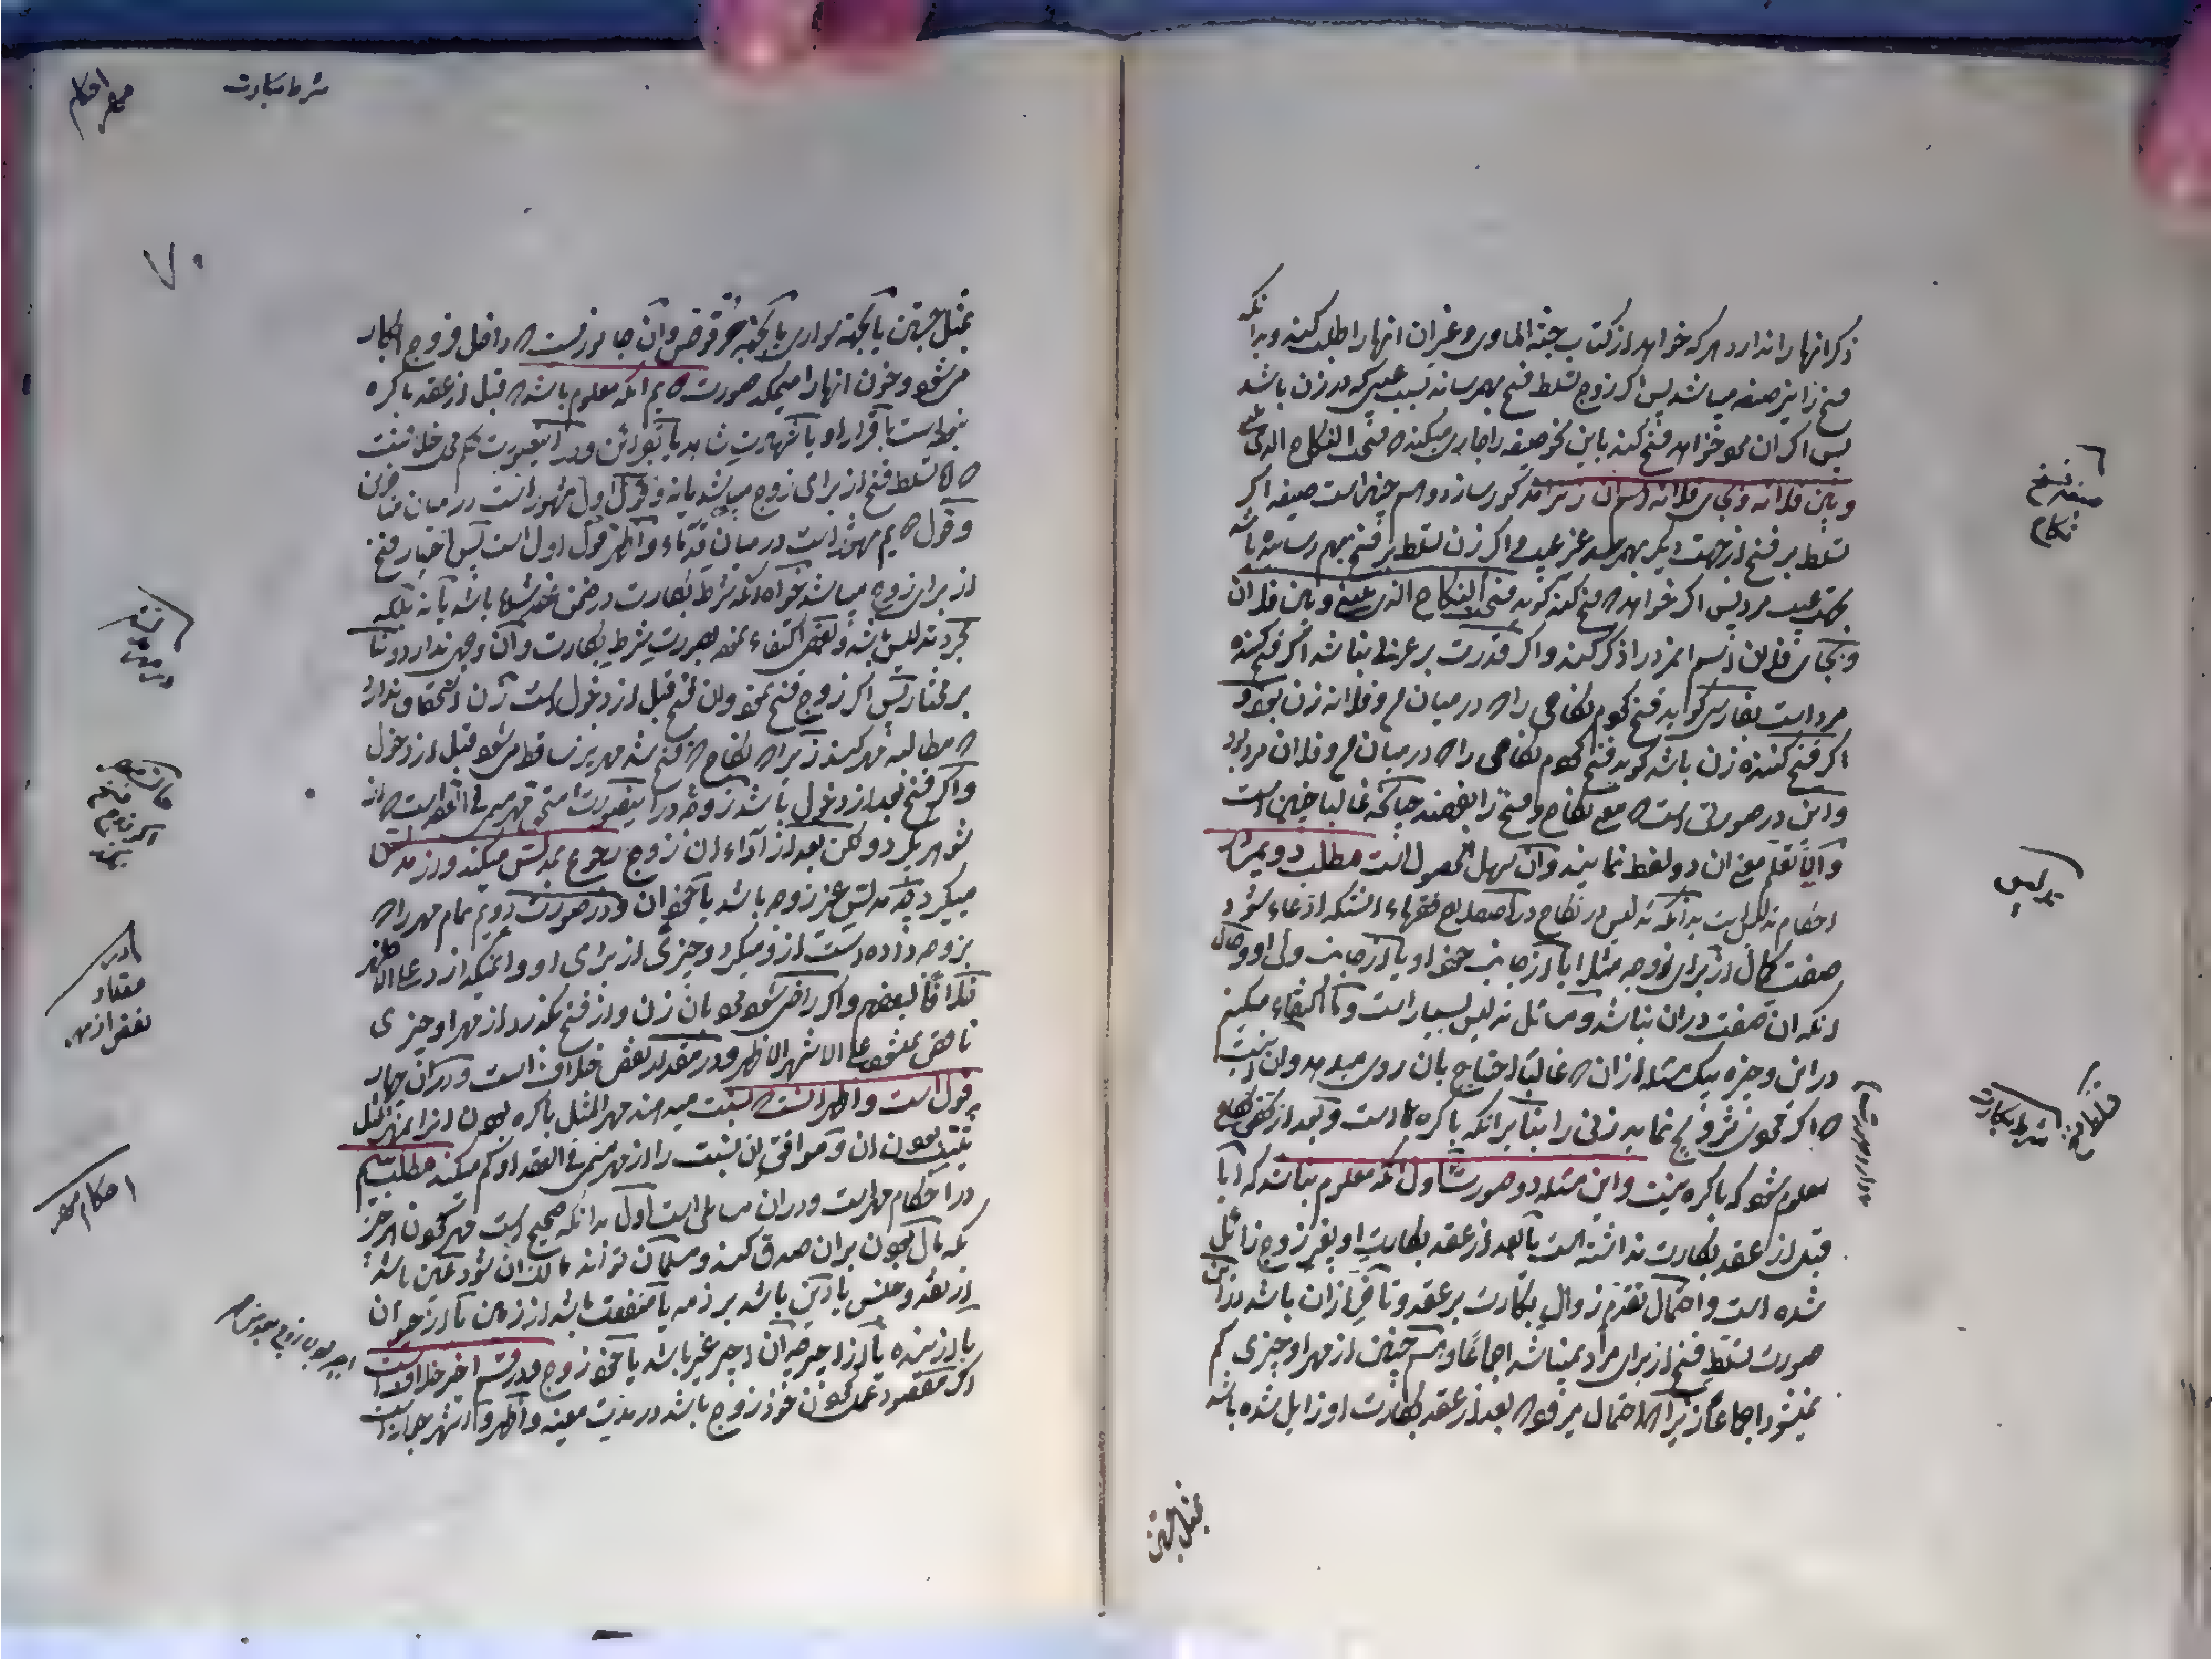 ذکر انها را ندارد هر که خواهد از کتاب جنة الماوی و غیر ان انها را طلب کند و بدانکه
فسخ را نیز صیغه میباشد پس اگر زوج تسلط فسخ بهم رساند بسبب عیبی که در زن باشد
پس اگر ان مرد خواهد فسخ کند باین نحو صیغه را جاری میکند که فسخت النکاح الذی بینی
و بین فلانه و بجای فلانه اسم ان زن را مذکور سازد و هم چنین است صیغه اگر
تسلط بر فسخ از جهت دیگر بهم رسد غیر عیب و اگر زن تسلط بر فسخ بهم رسانیده باشد
بجهت عیب مرد پس اگر خواهد که فسخ کند گوید فسخت النکاح الذی بینی و بین فلان
و بجای فلان اسم انمرد را ذکر کند و اگر قدرت بر عربی نباشد اگر فسخ کننده
مرد است بفارسی گوید فسخ کردم نکاحی را که در میان من و فلانه زن بود و
اگر فسخ کننده زن باشد گوید فسخ کردم نکاحی را که در میان من و فلان مرد بود
و این در صورتی است که معنی نکاح و فسخ را بفهمند چنانکه غالبا چنین است
و الا تعلم معنی ان دو لفظ نمایند و آن سهل الحصول است مطلب دویم در
احکام تدلیس است بدانکه تدلیس در نکاح در اصطلاح فقهاء انستکه ادعاء شود
صفت کمال از برای زوجه مثلا یا از جانب خود او یا از جانب ولی او و حال
انکه ان صفت در ان نباشد و مسائل تدلیس بسیار است و ما اکتفاء میکنیم
در این وجیزه بیک مسئله از ان که غالبا احتیاج بان روی میدهد و ان اینست
که اگر مردی تزویج نماید زنی را بنا بر انکه باکره است و بعد از
معلوم شود که باکره نیست و این مسئله دو صورت اول انکه معلوم نباشد که ایا
قبل از عقد بکارت نداشته است یا بعد از عقد بکارت او بغیر زوج زائل
شده است و احتمال تقدم زوال بکارت بر عقد و تاخر از ان باشد در این
صورت تسلط فسخ از برای مرد نمیباشد اجماعا و هم چنین از مهر او چیزی کم
نمیشود اجماعا زیرا که احتمال میرود که بعد از عقد بکارت او زایل شده باشد
صیغه فسخ
نکاح
تدلیس
شرط بکارت
بمثل جستن
شرط بکارت
مهر احکام
۷۰
بمثل جستن یا بجهة سواری یا بجهة و آن جانوریست که داخل فروج ابکار
میشود و خون انها را میمکد صورت دویم انکه معلوم باشد که قبل از عقد باکره
نبوده است باقرار او یا شهادت شاهد یا بقراین و در اینصورت خلافست
که ایا تسلط فسخ از برای زوج میباشد یا نه و قول اول مشهور است در میان متاخرین
و قول دویم مشهور است در میان قدماء و اظهر قول اول است پس اختیار فسخ
از برای زوج میباشد خواه انکه شرط بکارت در ضمن عقد شده باشد یا نه بلکه
بمجرد تدلیس باشد و بعضی اکتفاء نموده بصورت شرط بکارت و آن وجهی ندارد و بنا
بر مختار پس اگر زوج فسخ نمود و ان فسخ قبل از دخول است زن استحقاق ندارد
که مطالبه مهر کند زیرا که نکاح که فسخ شد مهر نیز ساقط میشود قبل از دخول
و اگر فسخ بعد از دخول باشد زوجه در اینصورت مستحق مهر مسمی فی العقد است که از
شوهر بگیرد و لکن بعد از اداء ان زوج رجوع بمدلس میکند و از مدلس
میگیرد چه مدلس غیر زوجه باشد یا خود ان و در صورت دویم تمام مهر را که
بزوجه داده است از او میگیرد و چیزی از برای او وا نمیگذارد علی الاظهر
خلافا لبعضهم و اگر راضی شود مرد بان زن و از فسخ بگذرد از مهر او چیزی
ناقص نمیشود علی الاشهر الاظهر و در مقدار نقص خلاف است و در ان چهار
قول است و اظهر انست که نسبت میدهند مهر المثل باکره بودن انرا بمهر المثل
ثیب بودن ان و موافق ان نسبت را از مهر مسمی فی العقد او کم میکند مطلب سیم
در احکام مهر است و در ان مسائلی است اول بدانکه صحیح است مهر کردن هر چیز
که مال بودن بر ان صدق کند و مسلمان تواند مالک ان شود عین باشد
از نقد و جنس یا دین باشد بر ذمه یا منفعت باشد از زمین یا از حیوان
یا از بنده یا از اجیر چه ان اجیر غیر باشد یا خود زوج و در قسم اخیر خلاف است
اگر مقصود عمل کردن خود زوج باشد در مدت معینه و اظهر و اشهر جواز است
اگر زوج فسخ
نکند
مقدار
نقص از مهر
احکام مهر